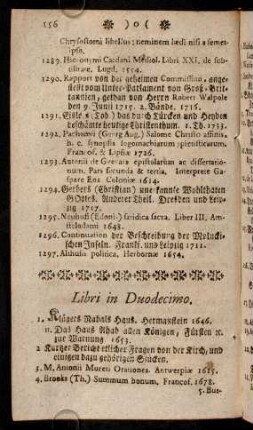 156 )o(
Chrysostomi libellus; neminem lædi nisi a semet-
ipso.
1289. Hieronymi Cardani Mediol. Libri XXI. de sub-
tilitate. Lugd. 1554.
1290. Rapport von der geheimen Commission, ange-
stellt vom Unter-Parlament von Groß-Brit-
tannien, gethan von Herrn Robert Walpole
den 9. Junii 1715. 2. Bände. 1716.
1291. das durch Türcken und Heyden
beschämte heutige Christenthum. 1. Th. 1753.
1292. Pachomii (Georg Aug.) Salome Christo affinis,
h. e. synopsis logomachiarum pietisticarum.
Francof. & Lipsiæ 1726.
1293. Antonii de Guevara epistolarum ac dissertatio-
num, Pars secunda & tertia, Interprete Ga-
spare Ens. Coloniæ 1614.
1294. Gerbers (Christian) unerkannte Wohlthaten
GOttes. Anderer Theil. Dresden und Leip-
zig 1717.
1295. Neuhusii (Edoni) fatidica sacra. Liber III. Am-
stelodami 1648.
1296. Continuation der Beschreibung der Molucki-
schen Inseln. Franckf. und Leipzig 1711.
1297. Althusii politica. Herbornæ 1654.
Libri in Duodecimo.
1. Klägers Nabals Haus. Hermanstein 1646.
11. Das Haus Ahab allen Königen, Fürsten ꝛc.
zur Warnung 1653.
2 Kurtzer Bericht etlicher Fragen von der Kirch, und
einigen dazu gehörigen Stücken.
3. M. Antonii Mureti Orationes. Antwerpiæ 1685.
4. Brooks (Th.) Summum bonum, Francof. 1678.
5. Bus-